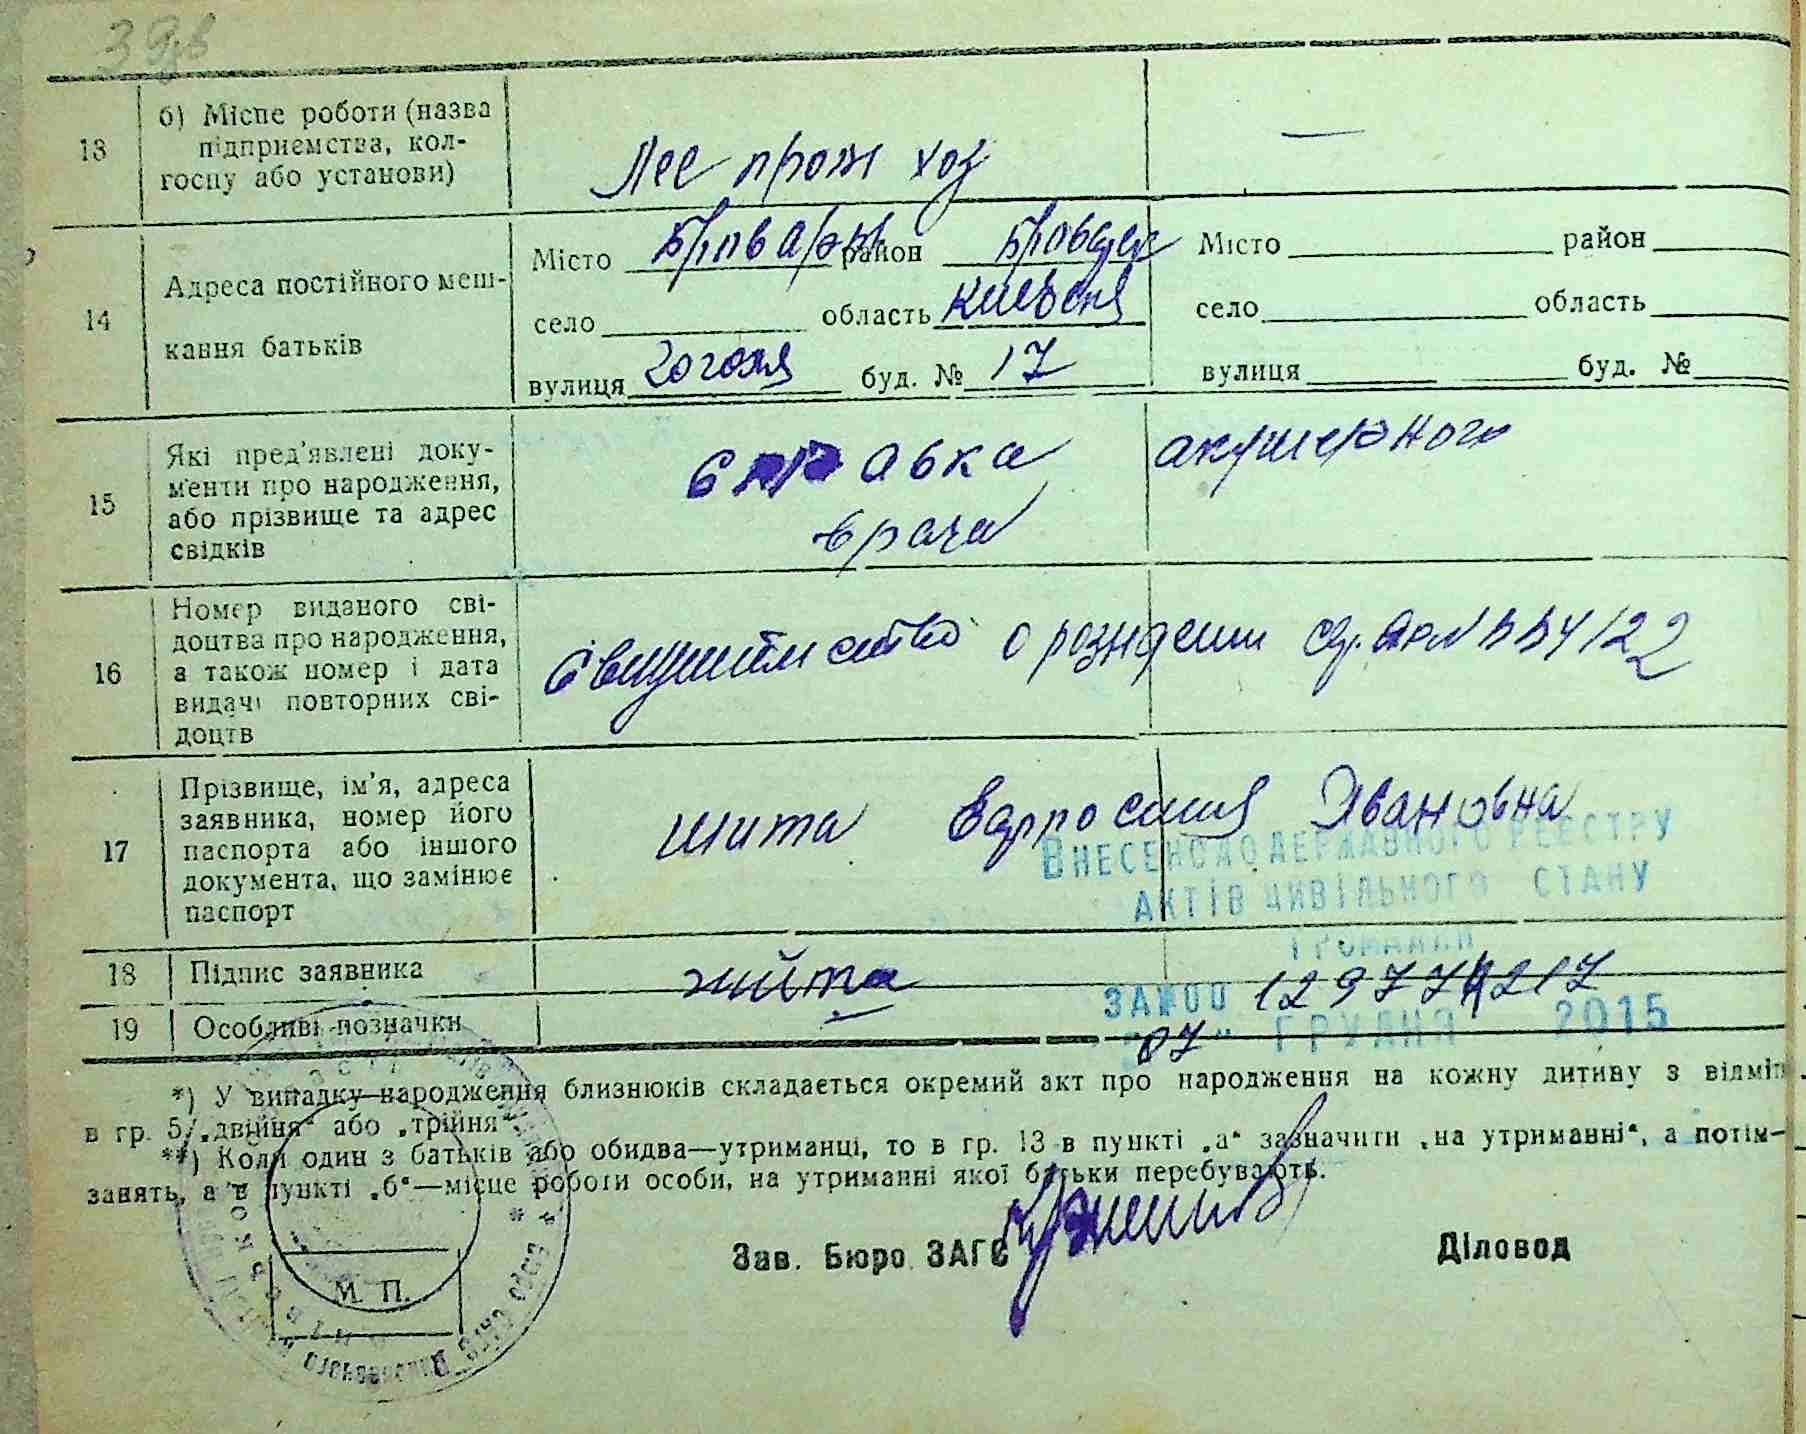 13 б) Місце роботи (назва
підприємства, кол-
госпу або установи)
Лес пром хоз —
14 Адреса постійного меш-
кання батьків
Місто Бровары район Бровар Місто район
село область Киевская село область
вулиця Гоголя буд. № 17 вулиця буд. №
15 Які пред'явлені доку-
менти про народження,
або прізвище та адрес
свідків
справка акушерного
врача
16 Номер виданого сві-
доцтва про народження,
а також номер і дата
видачі повторних сві-
доцтв
Свидительство о рождении
17 Прізвище, ім'я, адреса
заявника, номер його
паспорта або іншого
документа, що замінює
паспорт
Шита Ефросиния Ивановна
ВНЕСЕНО ДО ДЕРЖАВНОГО РЕЄСТРУ
АКТІВ ЦИВІЛЬНОГО СТАНУ
ГРОМАДЯН
18 Підпис заявника
ЗА №00
19 Особливі позначки
"07" ГРУДНЯ 2015
*) У випадку народження близнюків складається окремий акт про народження на кожну дитину з відміт
в гр. 5 „двійня“ або „трійня“.
**) Коли один з батьків або обидва—утриманці, то в гр. 13 в пункті „а“ зазначити „на утриманні“, а потім—
занять, а в пункті „б“—місце роботи особи, на утриманні якої батьки перебувають.
Зав. Бюро ЗАГС Діловод
М. П.